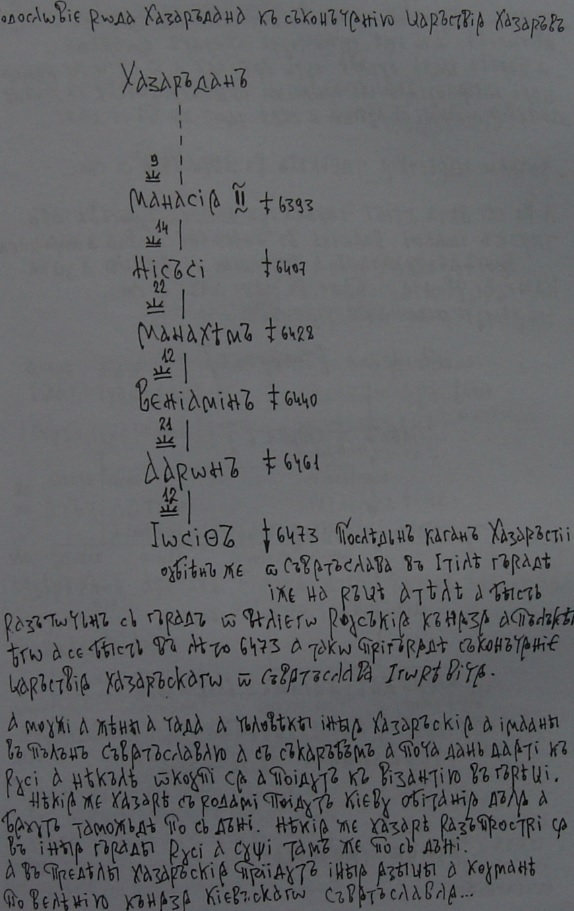 одословіе рѡда Хазаръдана къ съконъчѧнію царъствіѧ Хазаръвъ
Хазаръданъ
9
Манасіѧ II ‡ 6393
14
Нісъсі ‡ 6407
22
Манахѣмъ ‡ 6428
12
Веніамінъ ‡ 6440
21
Аарѡнъ ‡ 6461
12
Іѡсіѳъ ‡ 6473 Послѣдьнъ каганъ Хазаръстіі
оубіѣнъ же ѿ Съвѧтъслава въ Ітілѣ гърадѣ
іже на рѣцѣ атѣлѣ а бысть
разътъчьнъ съ гърадъ ѿ вѣліегѡ Роусьскіѧ къняза а пълъкъ
ѣгѡ а се бысть въ лѣто 6473 а такѡ прігърадѣ съконъчѧніе
царьствіѧ хазаръскагѡ ѿ Съвѧтъслава Ігѡрѣвічѧ.
а моужі а жѣны а чада а чьловѣкы іныѧ Хазаръскіѧ а імааны
въ пълънъ Съвѧтъславлю а съ съкаръбъмъ а поча дань даѧті къ
Русі а нѣкълѣ ѿкоупі сѧ а поідутъ къ Візантію въ гърѣці.
Нѣкіѧ же Хазарѣ съ родамі поідутъ Кіеву обітаніѧ дѣлѧ а
бѫдутъ таможьдѣ по сь дьні. Нѣкіѧ же Хазарѣ разъпрострі сѧ
въ іныѧ гърады Русі а сущі тамъ же по сь дьні.
а въ прѣдѣлы Хазаръскіѧ пріідутъ іныѧ ѧзыцы а коуманѣ
по велѣнію кънѧзѧ Кіевъскагѡ Съвѧтъславлѧ...